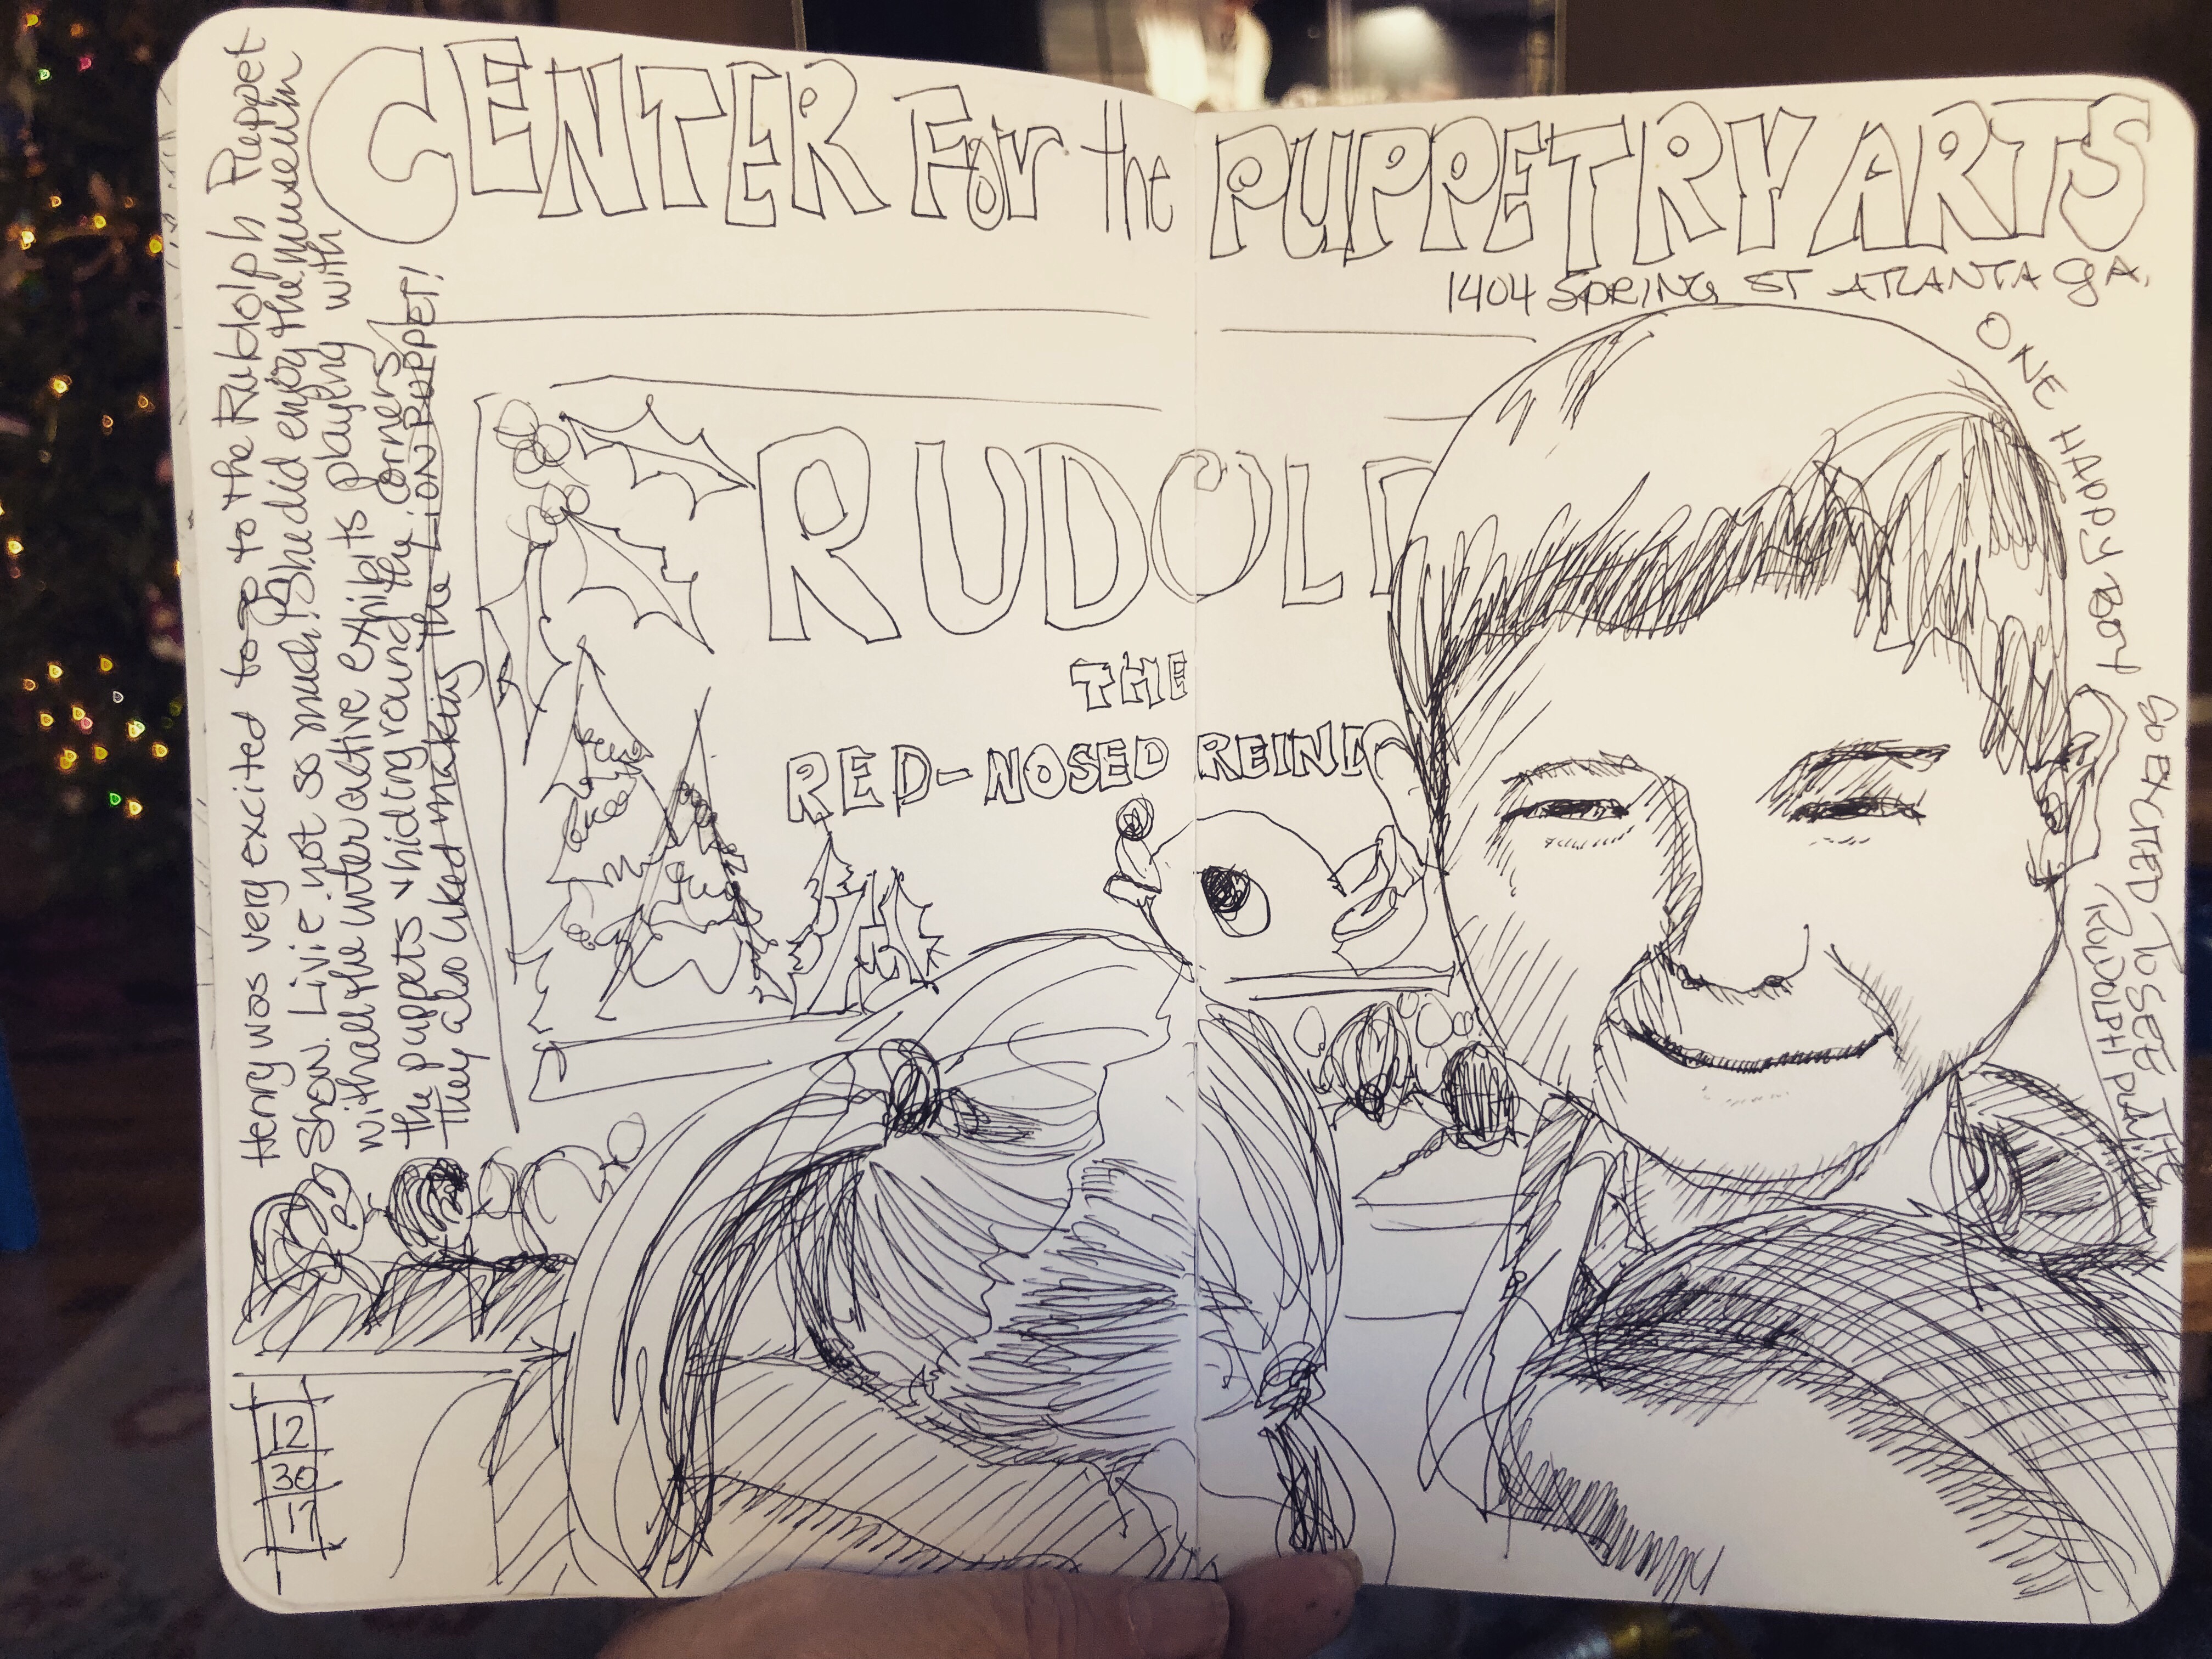 CENTER For the PUPPETRY ARTS
1404 SPRING ST ATLANTA GA.
Henry was very excited to go to the Rudolph Puppet
Show. Livie not so much! She did enjoy the museum
with all the interactive exhibits playing with
the puppets & hiding round the corners
They also liked making the LION PUPPET!
RUDOLP
THE
RED-NOSED REIND
ONE HAPPY BOY
SO EXCITED TO SEE THE
RUDOLPH PLAY
12
30